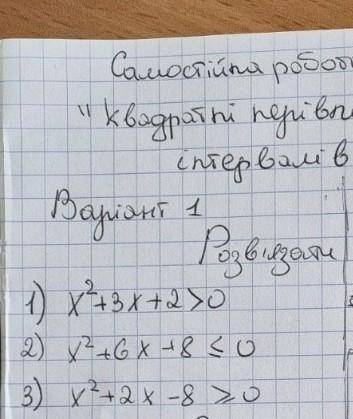 Самостійна робот
"Квадратні нерівн
інтервалів
Варіант 1
Розв'язати
1) x²+3x+2>0
2) x²+6x+8 ≤ 0
3) x²+2x-8 ≥ 0